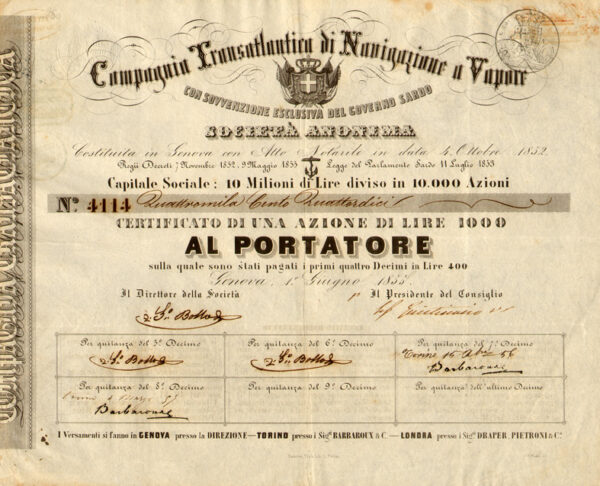 Compagnia Transatlantica di Navigazione a Vapore
CON SOVVENZIONE ESCLUSIVA DEL GOVERNO SARDO
SOCIETÀ ANONIMA
Costituita in Genova con Atto Notarile in data 4 Ottobre 1852
Regii Decreti 7 Novembre 1852, 9 Maggio 1853 Legge del Parlamento Sardo 11 Luglio 1853
Capitale Sociale: 10 Milioni di Lire diviso in 10.000 Azioni
No. 4114 Quattromila Cento Quattordici
CERTIFICATO DI UNA AZIONE DI LIRE 1000
AL PORTATORE
sulla quale sono stati pagati i primi quattro Decimi in Lire 400
Genova 1º Giugno 1855
Il Direttore della Società Il Presidente del Consiglio
Per quitanza del 5º Decimo Per quitanza del 6º Decimo Per quitanza del 7º Decimo
Barbaroux
Per quitanza del 8º Decimo Per quitanza del 9º Decimo Per quitanza dell'ultimo Decimo
Barbaroux
I Versamenti si fanno in GENOVA presso la DIREZIONE — TORINO presso i Sigri BARBAROUX & C. — LONDRA presso i Sigri DRAPER, PIETRONI & C.